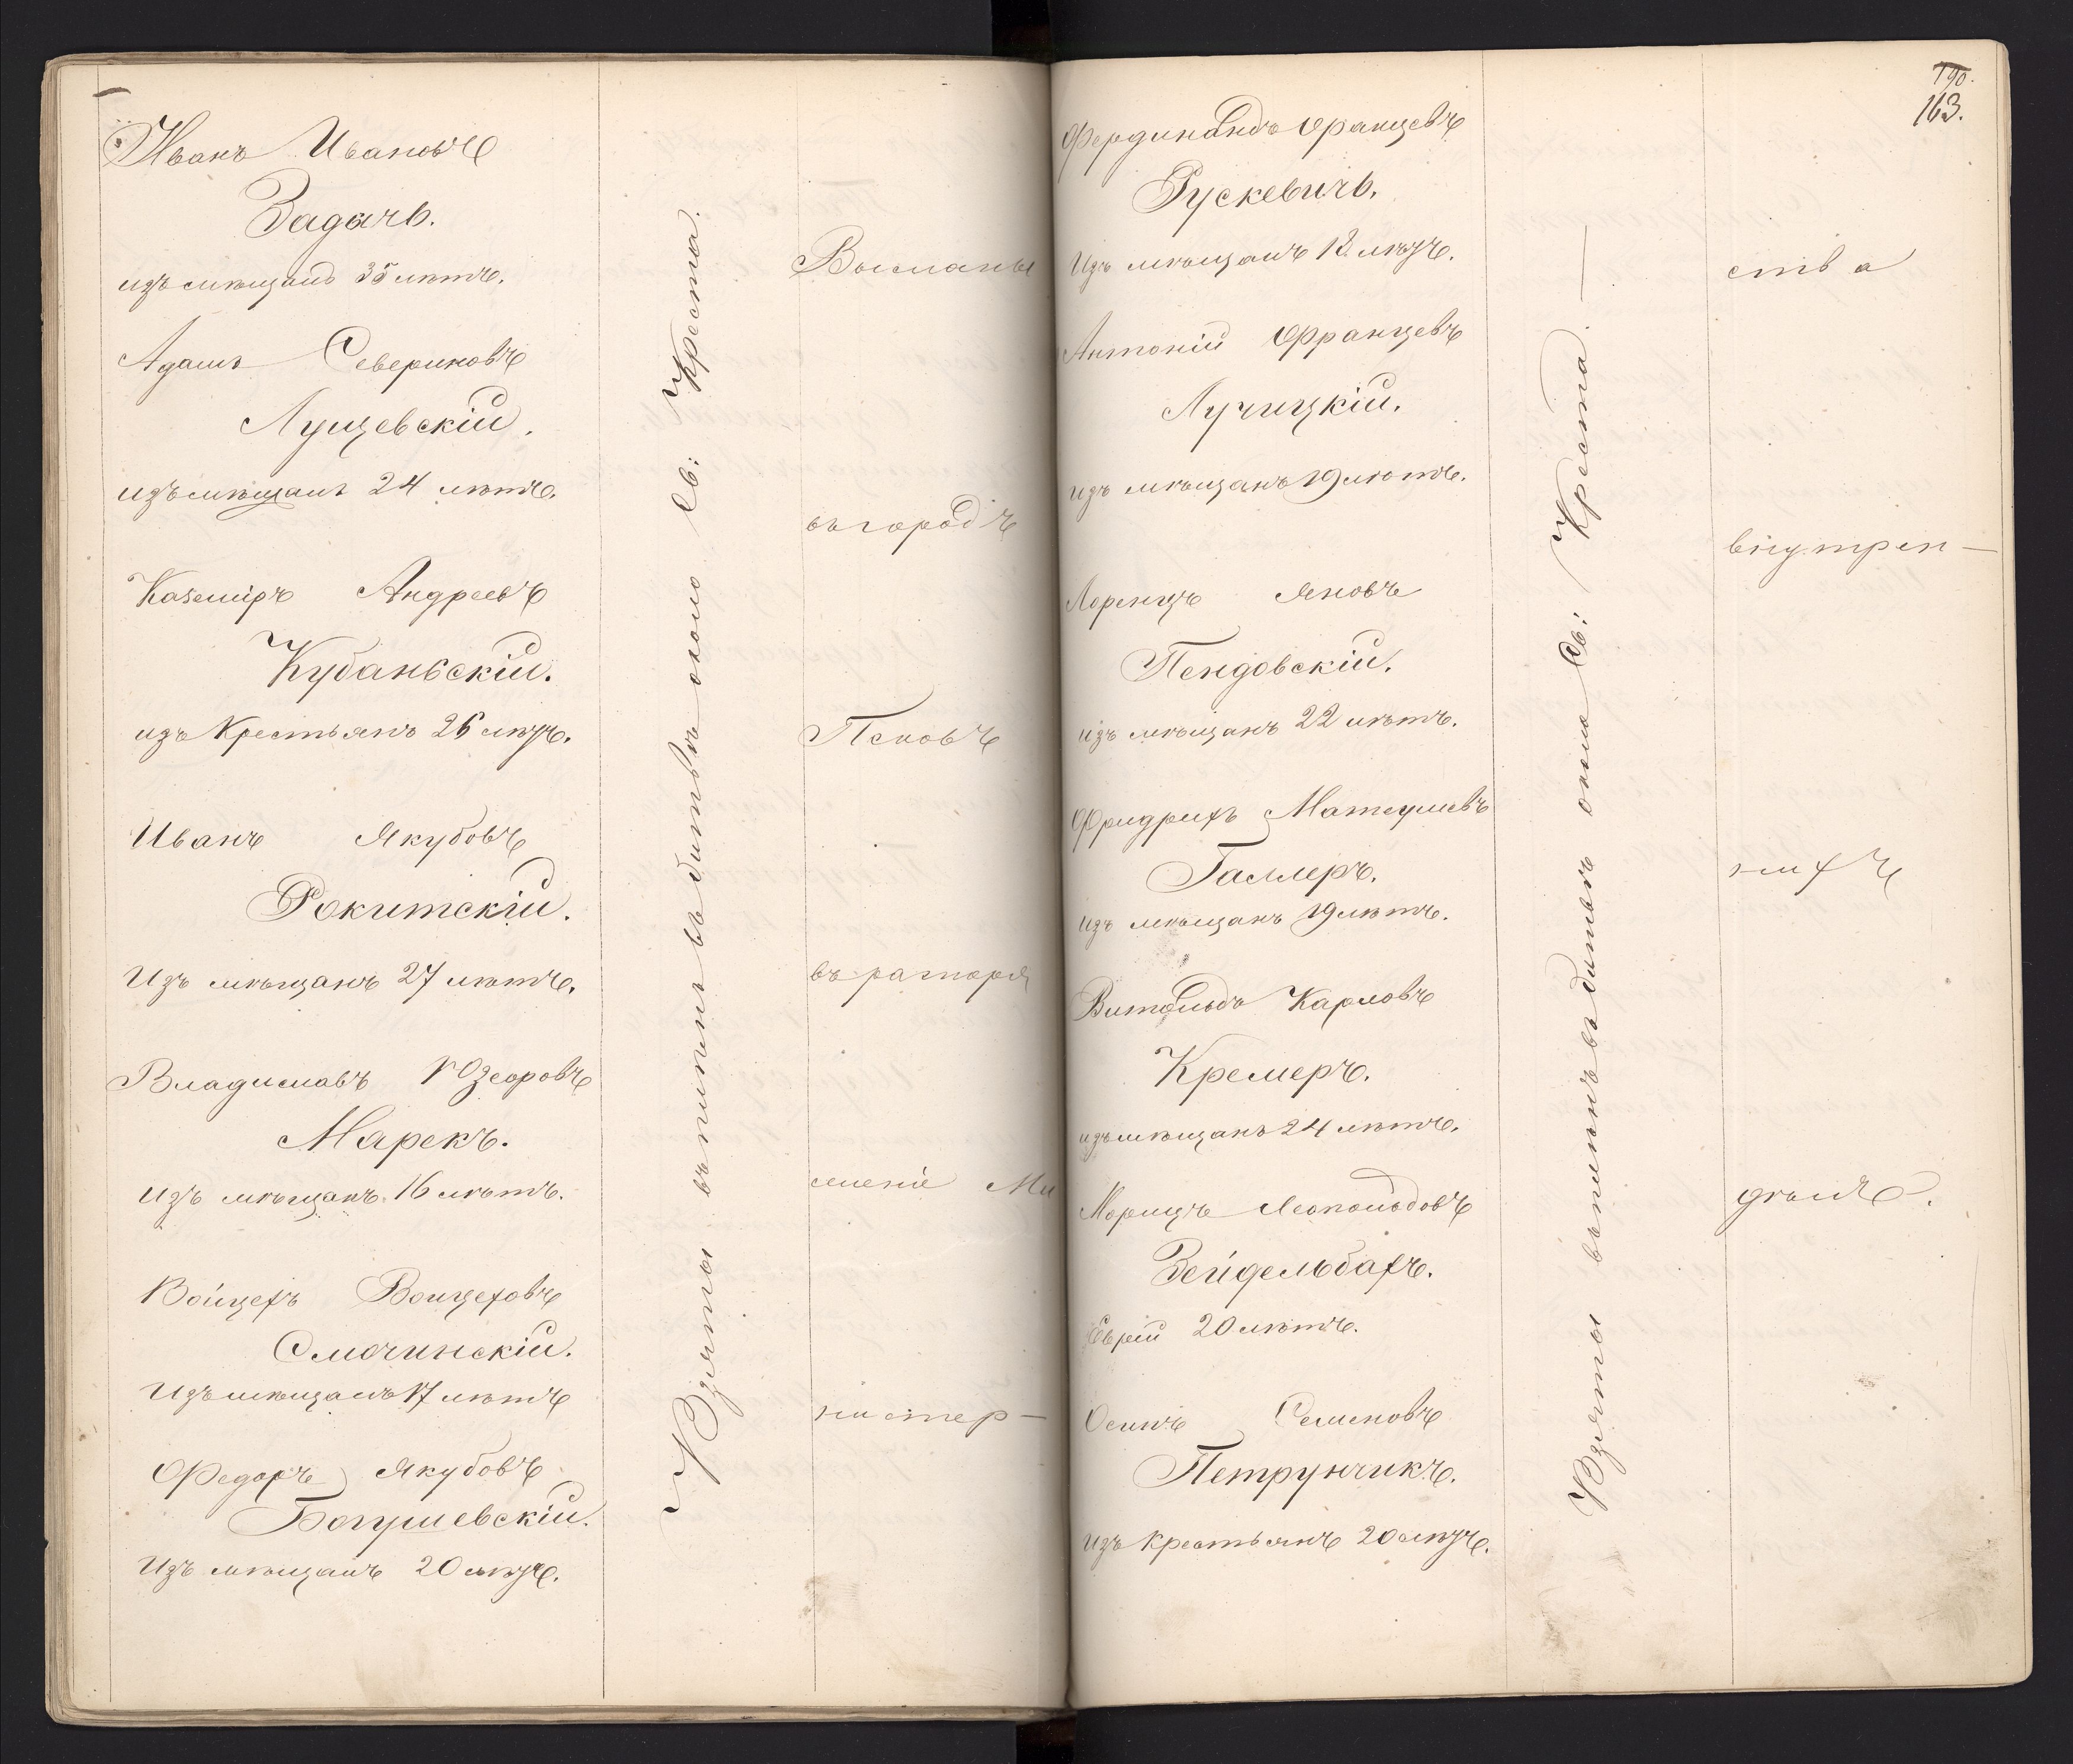 Иванъ Ивановъ
Задачь.
изъ мѣщанъ 35 лѣтъ.
Адамъ Севериновъ
Лущевскій.
изъ мѣщанъ 24 лѣтъ.
Каземіръ Андреевъ
Кубаньскій.
изъ крестьянъ 26 лѣтъ.
Иванъ Якубовъ
Рокитскій.
Изъ мѣщанъ 27 лѣтъ.
Владиславъ Юзефовъ
Марекъ.
изъ мѣщанъ 16 лѣтъ.
Войцехъ Войцеховъ
Смочинскій.
Изъ мѣщанъ 17 лѣтъ
Федоръ Якубовъ
Богушевскій.
Изъ мѣщанъ 20 лѣтъ.
Взяты въ плѣнъ въ битвѣ около Св: Креста.
Высланы
въ городъ
Псковъ
въ распоря
женіе Ми
нистер-
190.
163.
Фердинандъ Францевъ
Рускевичь.
Изъ мѣщанъ 18 лѣтъ.
Антоній Францевъ
Лучицкій.
изъ мѣщанъ 19 лѣтъ.
Лоренцъ Яновъ
Пендовскій.
изъ мѣщанъ 22 лѣтъ.
Фридрихъ Матеушевъ
Галлеръ.
изъ мѣщанъ 19 лѣтъ.
Витольдъ Карловъ
Кремеръ.
изъ мѣщанъ 24 лѣтъ.
Морицъ Леопольдовъ
Зейдельбахъ.
Еврей 20 лѣтъ.
Осипъ Семеновъ
Петрунчикъ.
изъ крестьянъ 20 лѣтъ.
Взяты въ плѣнъ въ битвѣ около Св: Креста.
ства
внутрен-
нихъ
дѣлъ.